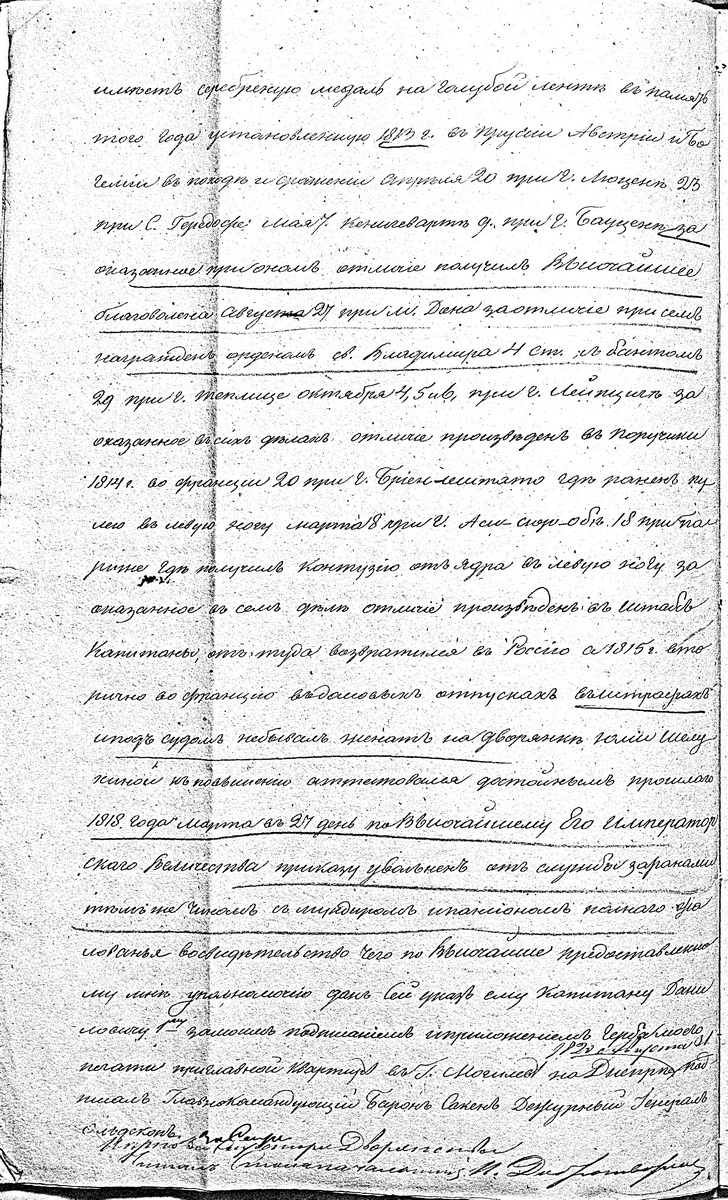 имѣетъ серебреную медаль на голубой лентѣ въ память
того года установленную 1813 г. въ Прусіи Австріи и Бо
геміи въ походѣ и сраженіи апрѣля 20 при г. Люценѣ 23
при С. Герсдорфе мая 7. Кенигсвартѣ 9. при г. Бауценѣ за
оказанное при ономъ отличіе получилъ Высочайшее
благоволена августа 27 при м. Дона за отличіе при семъ
награжденъ орденомъ св. Владимира 4 ст. съ бантомъ
29 при г. Теплице октября 4, 5 и 6, при г. Лейпцигѣ за
оказанное въ сихъ дѣлахъ отличіе произвѣденъ въ Поручики
1814 г. во франціи 20 при г. Бріен лешато гдѣ раненъ пу
лею въ левую ногу марта 8 при г. Арси-сюр-объ. 18 при Па
риже где получилъ контузію отъ ядра въ левую ногу за
оказанное въ семъ дѣлѣ отличіе произвѣденъ въ Штабсъ
Капитаны, отъ туда возвратился въ Россію а 1815 г. вто
рично во францію въ домовыхъ отпускахъ въ штрафахъ
и подъ судомъ небывалъ женатъ на дворянкѣ Юліи Шелу
хиной къ повышенію аттестовался достойнымъ прошлаго
1818 года марта въ 27 день по Высочайшему Его Император
скаго Величества приказу уволенъ отъ службы за ранами
тѣмъ же чиномъ съ мундиромъ и пансіономъ полнаго жа
лованья во свидѣтельство чего по Высочайше предоставленно
му мнѣ уполномочію данъ Сей указъ ему Капитану Дани
ловичу 1му за моимъ подписаніемъ и приложеніемъ Герба моего
182 августа 31
печати при главной квартирѣ въ Г. Могилеве на Днепрѣ под
писалъ Главнокомандующій Баронъ Сакенъ Дежурный Генералъ
Ольдекопъ.
за Секре Дворянства
читалъ